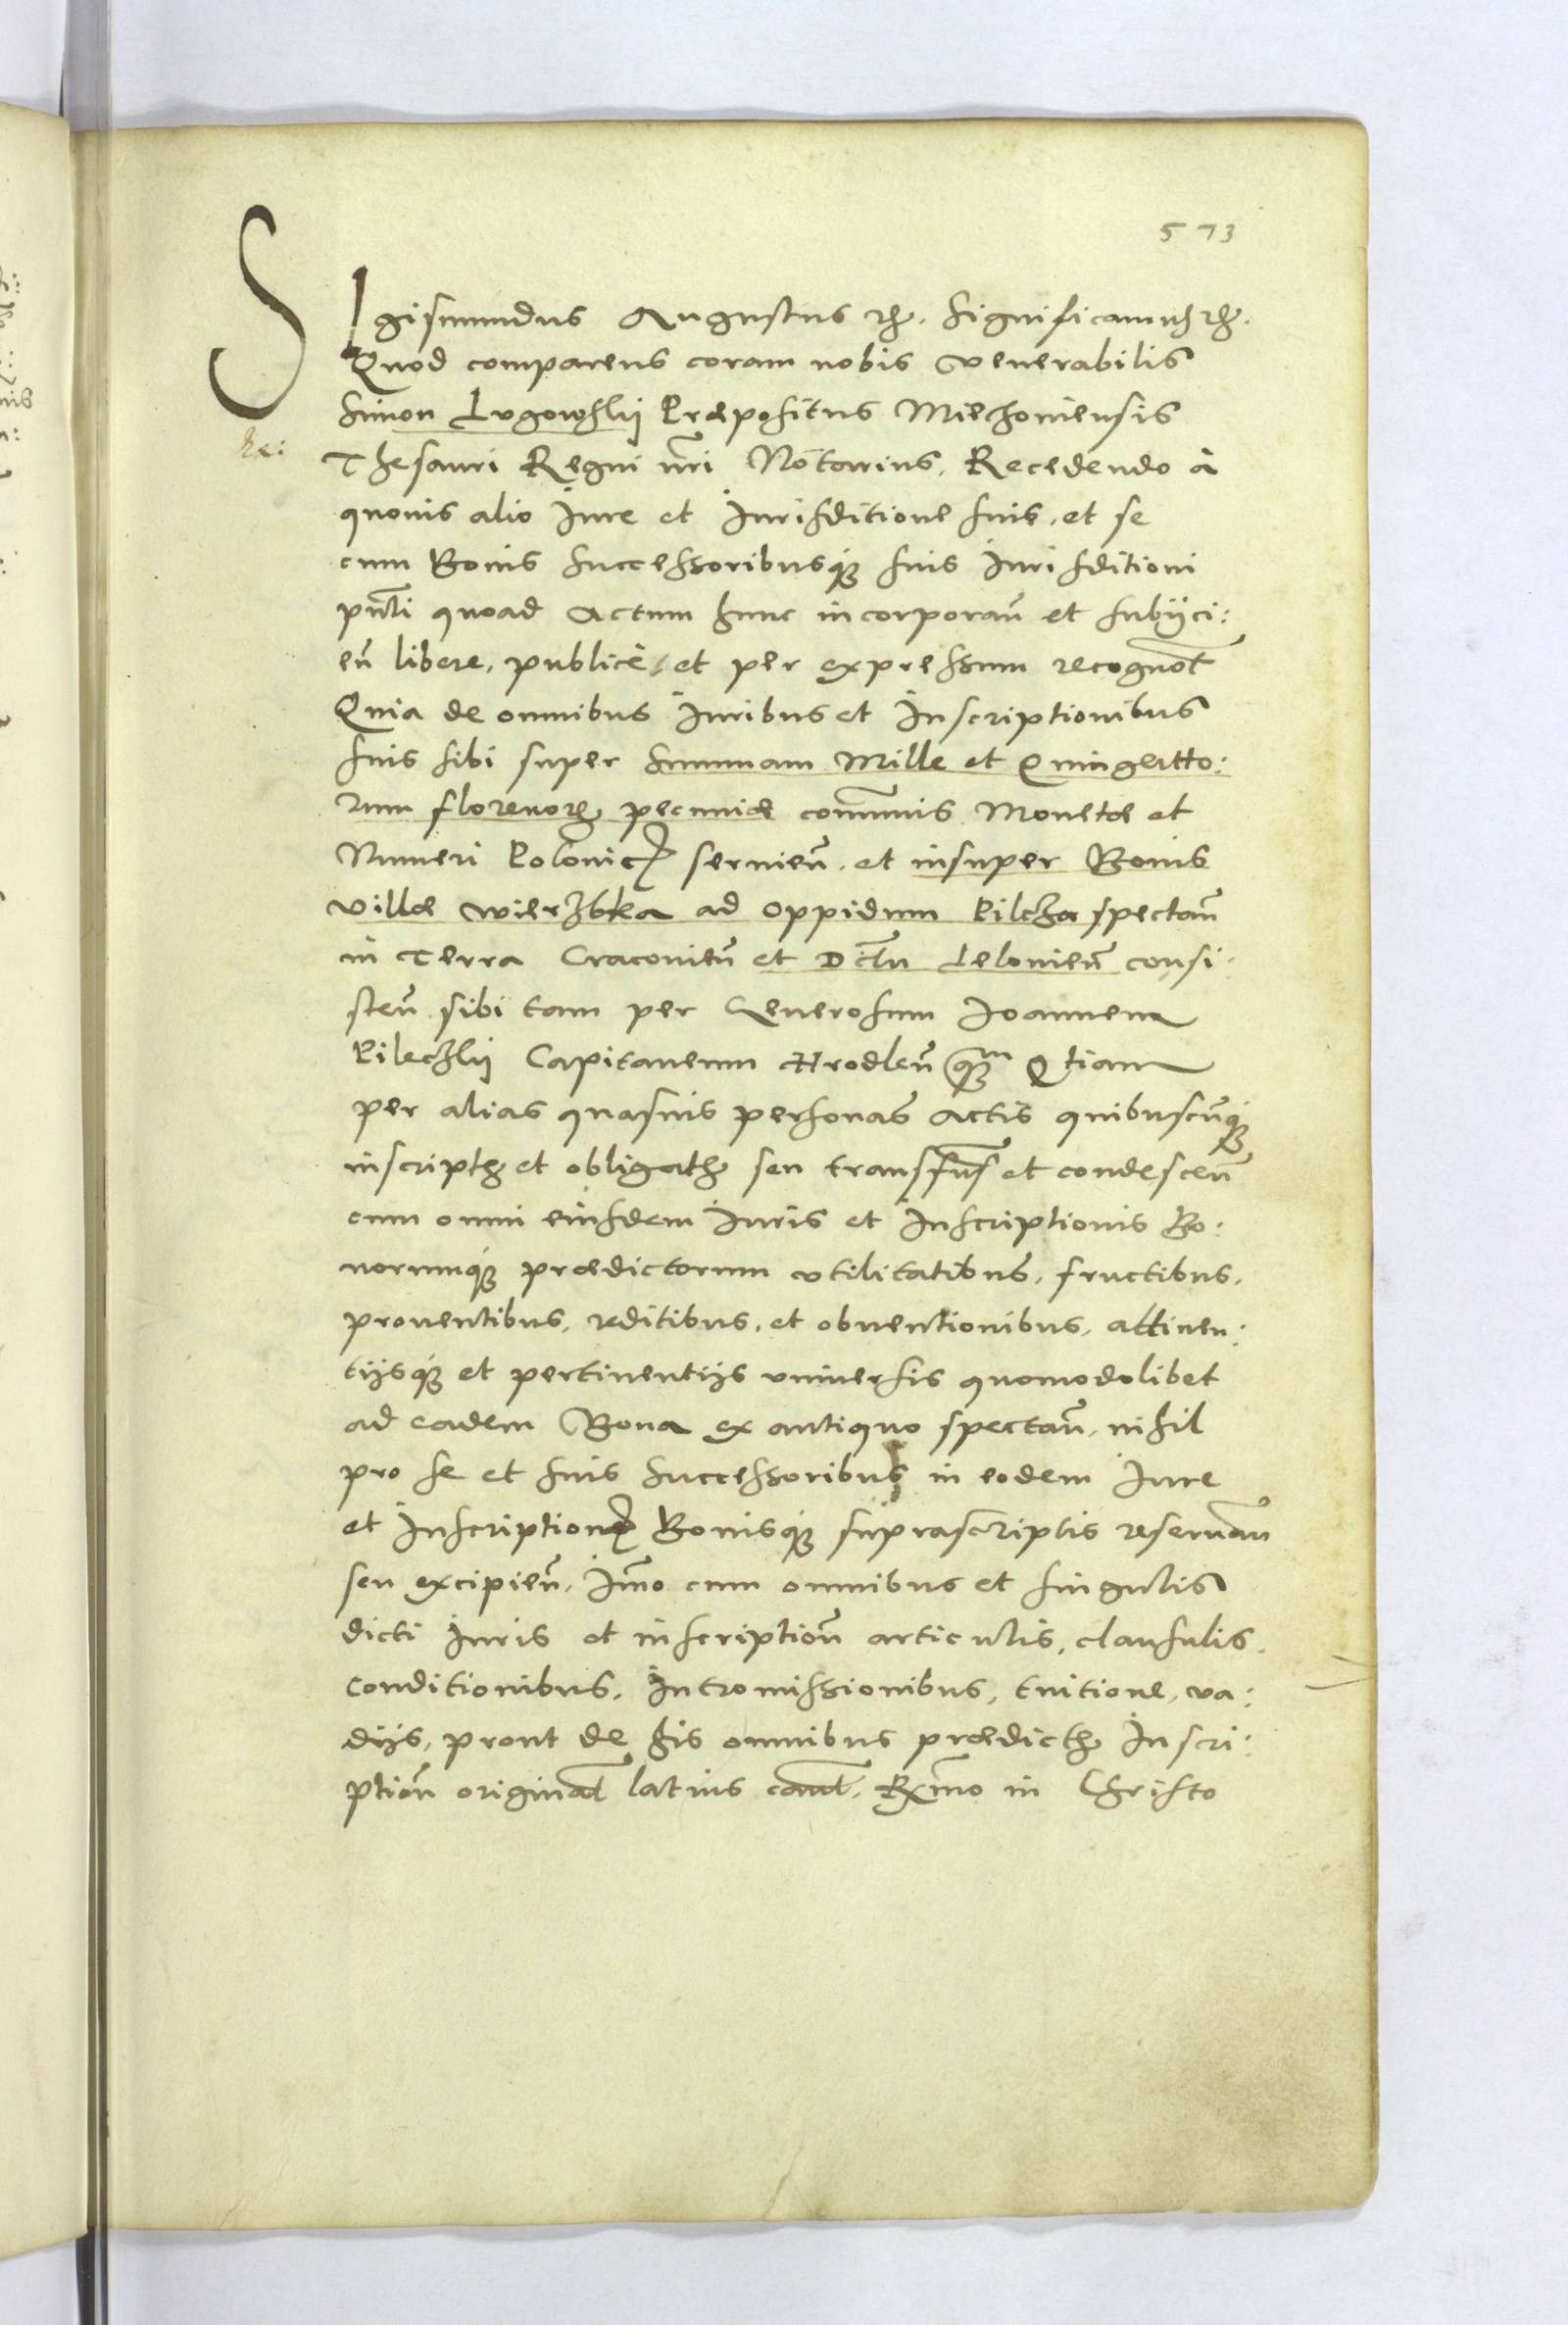 573
SIgismundus Augustus etc. Significamus etc.
Quod comparens coram nobis Venerabilis
Simon Lugowskij Præpositus Miechouiensis
Thesauri Regni nr̃i Notarius, Recedendo à
quouis alio Iure et Iurisditione suis, et se
cum Bonis Successoribusq́ꝫ suis Iurisditioni
pñti quoad Actum hunc incorporañ et subijci:
eñ libere, publicè, et per expressum recognot̃
Quia de omnibus Iuribus et Inscriptionibus
suis sibi super Summam Mille et Quingento:
rum florenorꝫ pecuniæ com̃unis Monetæ et
Numeri Polonicꝭ seruieñ, et insuper Bonis
villæ Wierzbka ad Oppidum Pilcza spectañ
in Terra Cracouieñ et Dictũ Lelouieñ consi:
steñ sibi tam per Generosum Ioannem
Pileczkij Capitaneum Hrodleñ q̃ꝫm Etiam
per alias quasuis personas Actis quibuscũqꝫ
inscriptꝫ et obligatꝫ seu transfus̃ et condesceñ
cum omni eiusdem Iuris et Inscriptionis Bo:
norumq́ꝫ prædictorum vtilitatibus, fructibus,
prouentibus, reditibus, et obuentionibus, attinen:
tijsq́ꝫ et pertinentijs vniuersis quomodolibet
ad eadem Bona ex antiquo spectañ, nihil
pro se et suis Successoribus in eodem Iure
et Inscriptionꝭ Bonisq́ꝫ suprascriptis reseruañ
seu excipieñ, Im̃o cum omnibus et singulis
dicti Iuris et inscriptioñ articulis, clausulis,
conditionibus, Intromissionibus, tuitione, va:
dijs, prout de his omnibus prædictꝫ Inscri:
ptioñ original̃ latius cauet̃, Rx̃mo in Christo